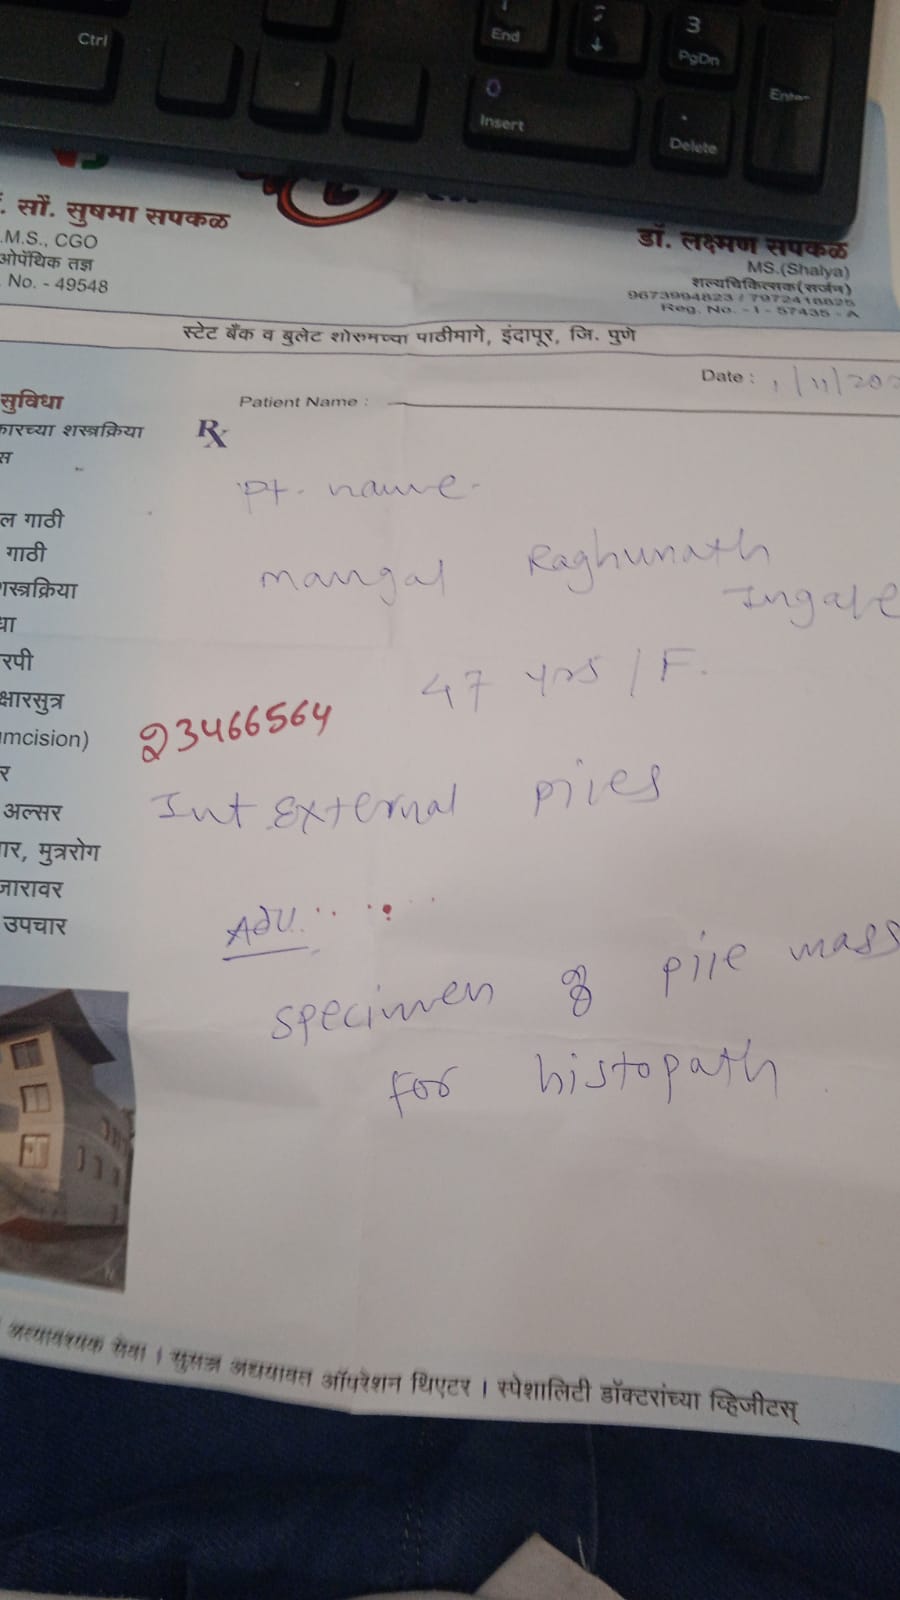 Ctrl
End
3
PgDn
0
Insert
Enter
Delete
सौ. सुषमा सपकळ
.M.S., CGO
ओपॅथिक तज्ञ
No. - 49548
डॉ. लक्ष्मण सपकळ
MS.(Shalya)
शल्यचिकित्सक(सर्जन)
9673994823 / 7972418825
Reg. No. - I - 57435 - A
स्टेट बँक व बुलेट शोरुमच्या पाठीमागे, इंदापूर, जि. पुणे
Date : 1/11/202
Patient Name :
सुविधा
कारच्या शस्त्रक्रिया
स
ल गाठी
गाठी
शस्त्रक्रिया
धा
रपी
क्षारसुत्र
umcision)
र
अल्सर
गार, मुत्ररोग
जारावर
उपचार
Rx
Pt. name -
mangal Raghunath
Ingale
47 yrs / F.
23466564
Int External piles
Adv.
specimen of pile mass
for histopath
अत्यावश्यक सेवा । सुसज्ज अद्ययावत ऑपरेशन थिएटर । स्पेशालिटी डॉक्टरांच्या व्हिजीटस्